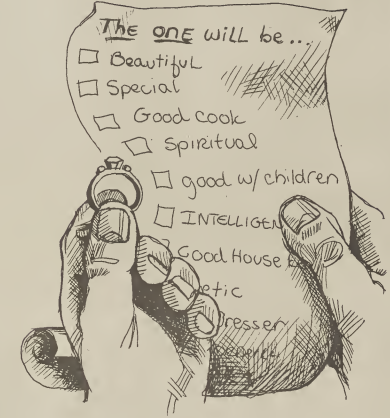 The one will be...
Beautiful
Special
Good cook
Spiritual
good w/ children
INTELLIGEN
Good House
etic
resser